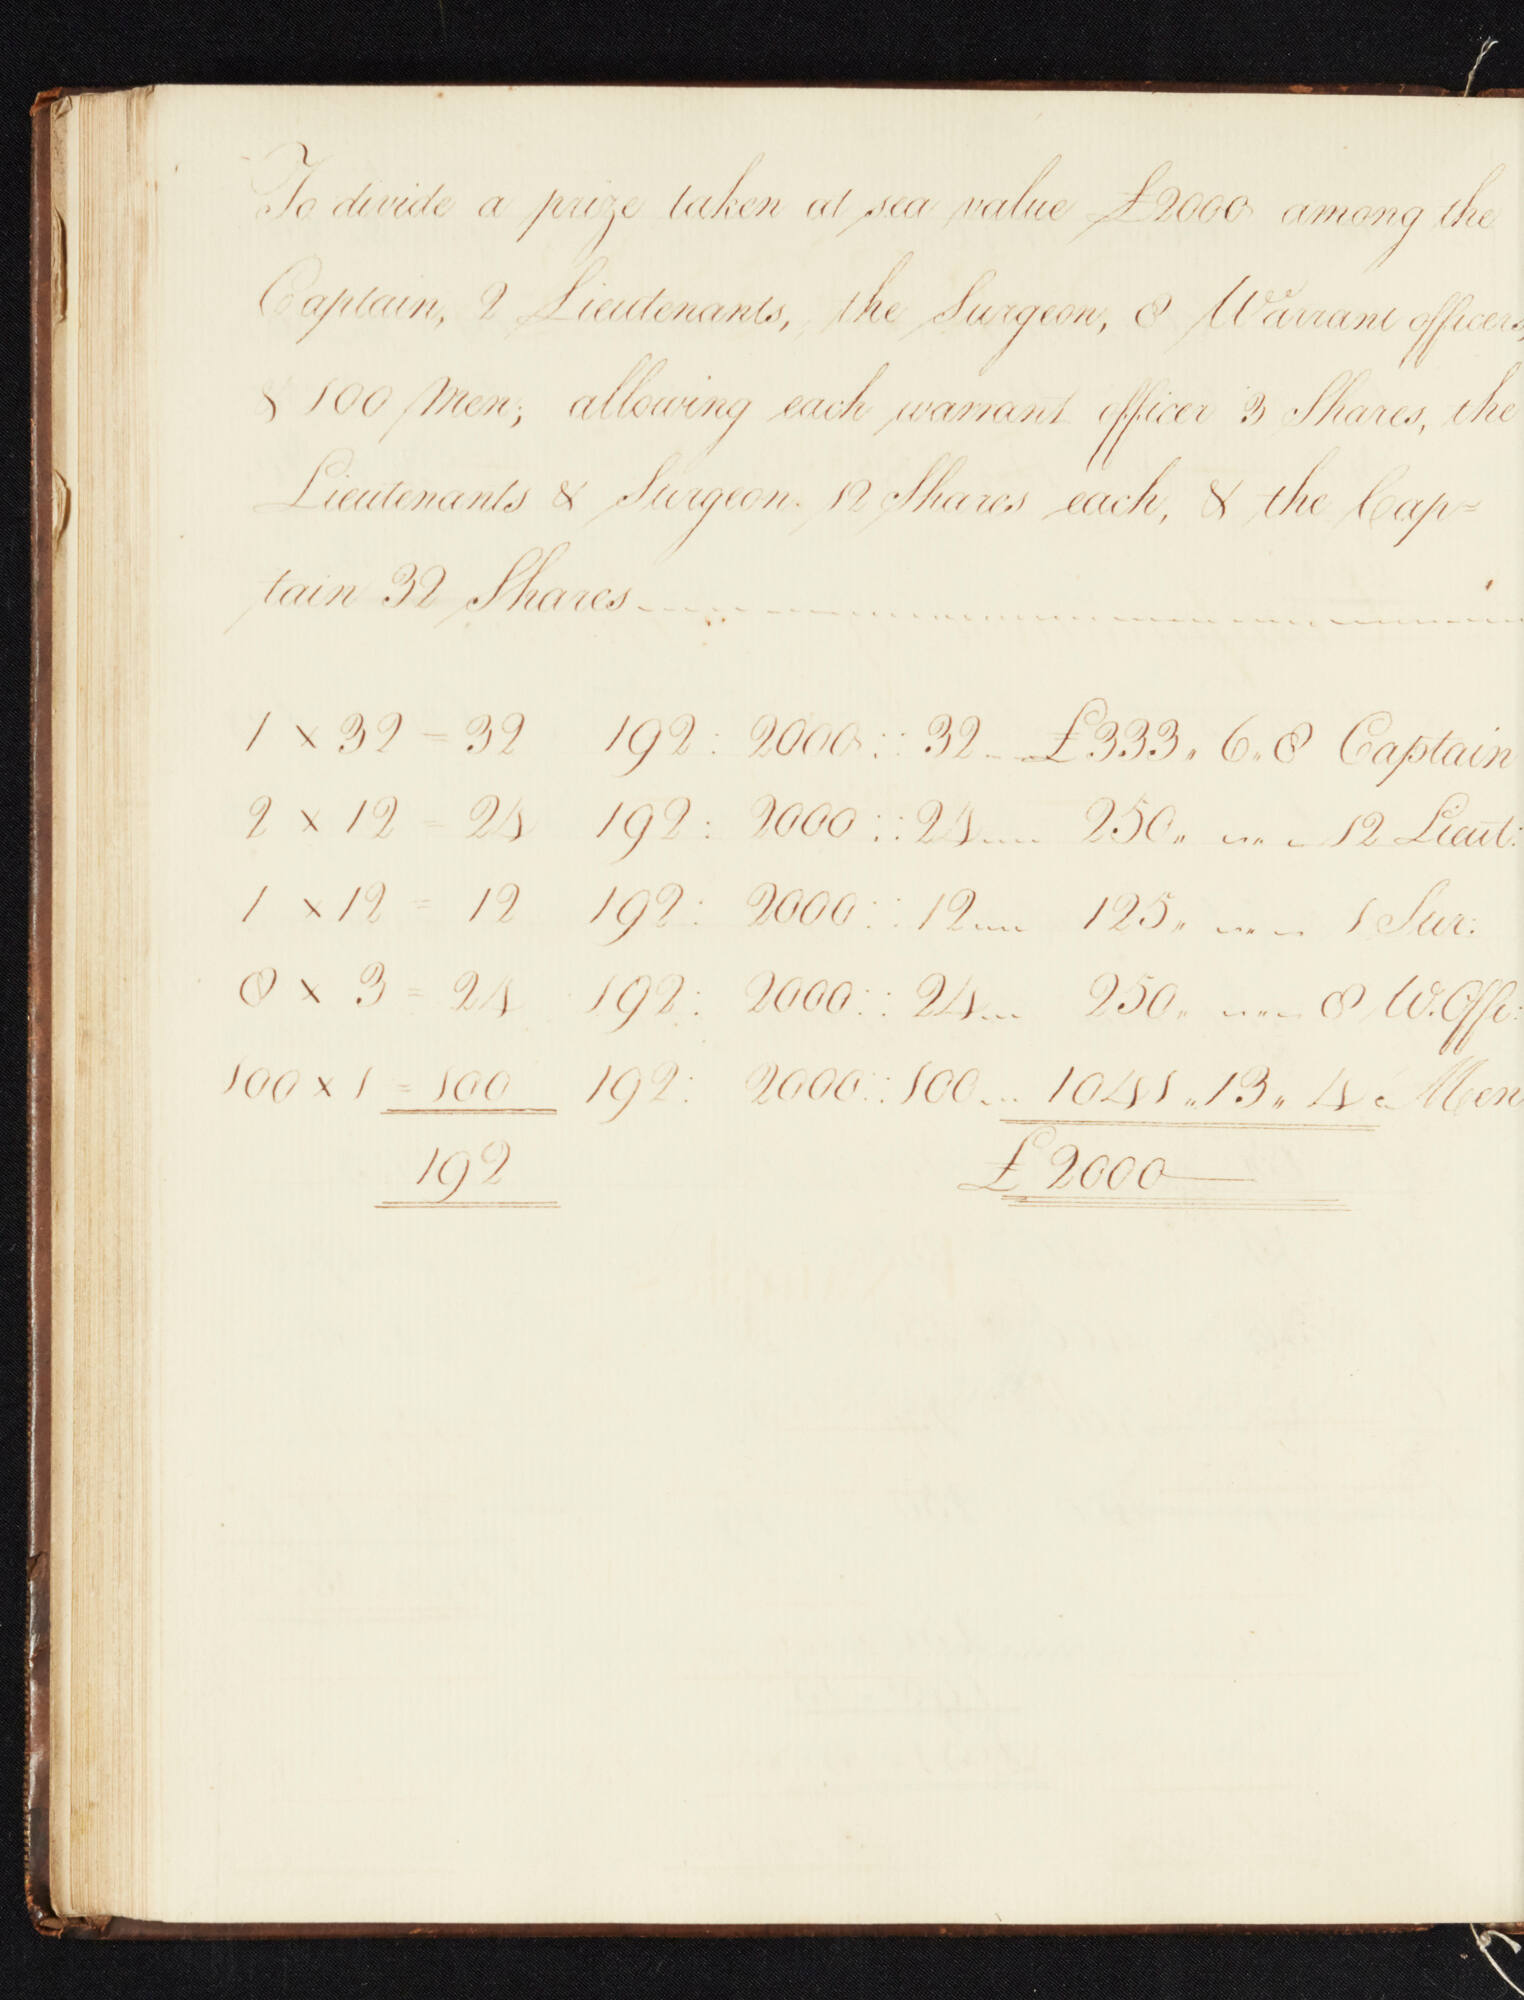 To divide a prize taken at sea value £2000 among the
Captain, 2 Lieutenants, the Surgeon, 8 Warrant officers,
& 100 Men; allowing each warrant officer 3 Shares, the
Lieutenants & Surgeon 12 Shares each, & the Cap=
tain 32 Shares
1 × 32 = 32 192 : 2000 :: 32 £333 " 6 " 8 Captain
2 × 12 = 24 192 : 2000 :: 24 250 " " 12 Lieut:
1 × 12 = 12 192 : 2000 :: 12 125 " " 1 Sur:
8 × 3 = 24 192 : 2000 :: 24 250 " " 8 W. Offr:
100 × 1 = 100 192 : 2000 :: 100 1041 " 13 " 4 Men
192 £2000